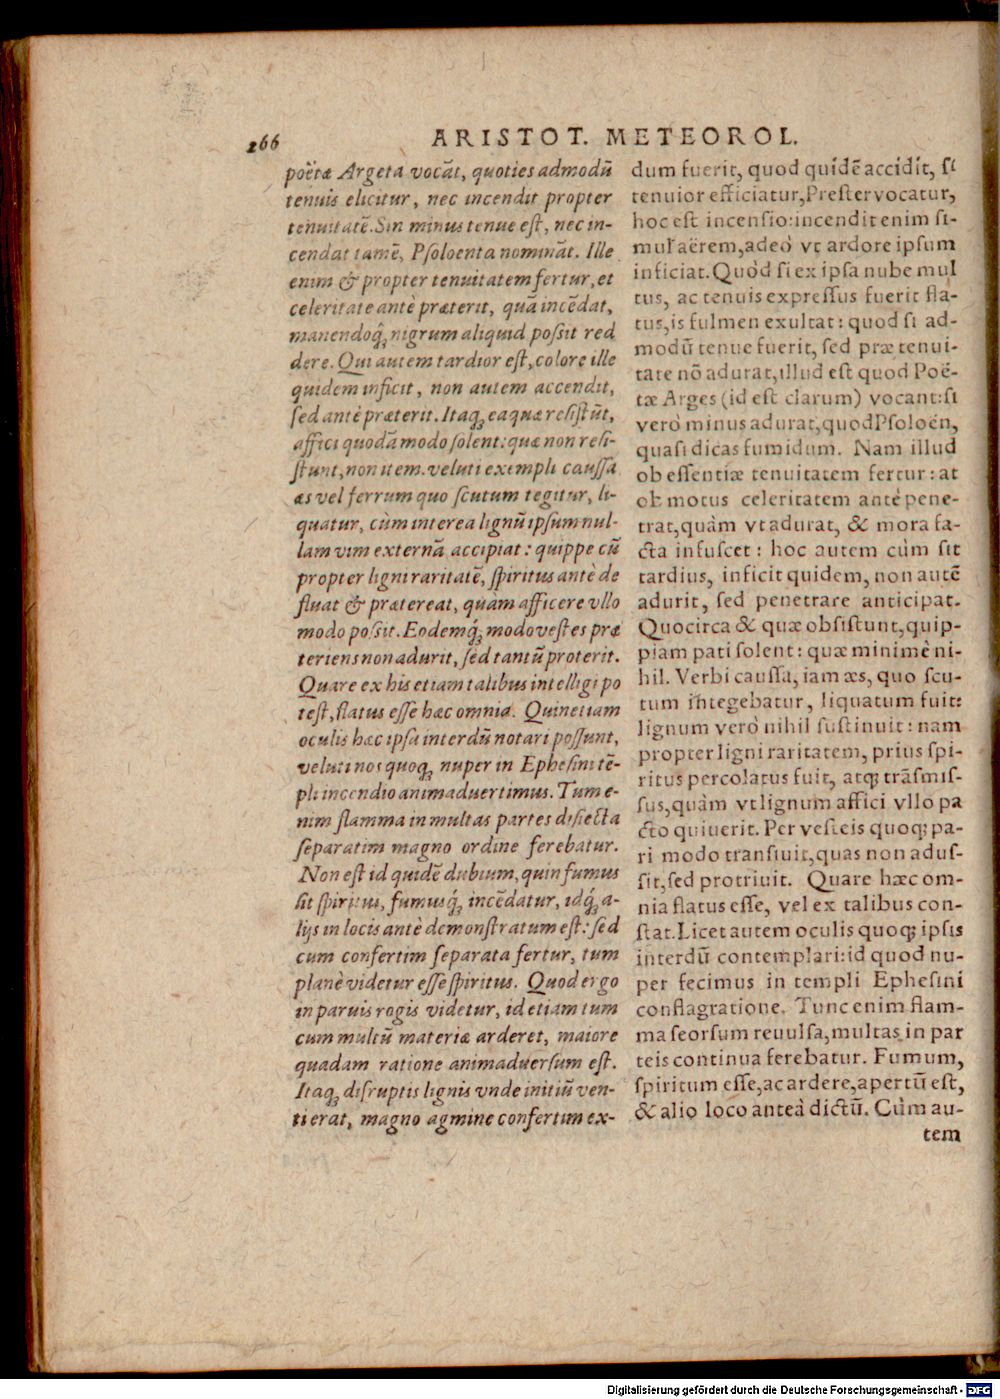 266
ARISTOT. METEOROL.
poëtæ Argeta vocãt, quoties admodũ
tenuis elicitur, nec incendit propter
tenuitatẽ. Sin minus tenue eſt, nec in-
cendat tamẽ, Pſoloenta nominãt. Ille
enim & propter tenuitatem fertur, et
celeritate antè præterit, quã incẽdat,
manendoq́; nigrum aliquid poſsit red
dere. Qui autem tardior eſt, colore ille
quidem inficit, non autem accendit,
ſed antè præterit. Itaq; ea quæ reſiſtũt,
affici quodã modo ſolent: quæ non reſi-
ſtunt, non item. veluti exempli cauſſa
æs vel ferrum quo ſcutum tegitur, li-
quatur, cùm interea lignũ ipſum nul-
lam vim externã accipiat: quippe cũ
propter ligni raritatẽ, ſpiritus antè de
fluat & prætereat, quam afficere vllo
modo poſsit. Eodemq́; modo veſtes præ
teriens non adurit, ſed tantũ proterit.
Quare ex his etiam talibus intelligi po
teſt, flatus eſſe hæc omnia. Quinetiam
oculis hæc ipſa interdũ notari poſſunt,
veluti nos quoq; nuper in Epheſini tẽ-
pli incendio animaduertimus. Tum e-
nim flamma in multas partes diſiecta
ſeparatim magno ordine ferebatur.
Non eſt id quidẽ dubium, quin fumus
ſit ſpiritus, fumusq́; incẽdatur, idq́; a-
lijs in locis antè demonſtratum eſt: ſed
cum confertim ſeparata fertur, tum
planè videtur eſſe ſpiritus. Quod ergo
in paruis rogis videtur, id etiam tum
cum multũ materiæ arderet, maiore
quadam ratione animaduerſum eſt.
Itaq; diſruptis lignis vnde initiũ ven-
ti erat, magno agmine confertim ex-
dum fuerit, quod quidẽ accidit, ſi
tenuior efficiatur, Preſter vocatur,
hoc eſt incenſio: incendit enim ſi-
mul aërem, adeò vt ardore ipſum
inficiat. Quòd ſi ex ipſa nube mul
tus, ac tenuis expreſſus fuerit fla-
tus, is fulmen exultat: quod ſi ad-
modũ tenue fuerit, ſed præ tenui-
tate nõ adurat, illud eſt quod Poë-
tæ Arges (id eſt clarum) vocant: ſi
verò minus adurat, quod Pſoloën,
quaſi dicas fumidum. Nam illud
ob eſſentiæ tenuitatem fertur: at
ob motus celeritatem antè pene-
trat, quàm vt adurat, & mora fa-
cta infuſcet: hoc autem cùm ſit
tardius, inficit quidem, non autẽ
adurit, ſed penetrare anticipat.
Quocirca & quæ obſiſtunt, quip-
piam pati ſolent: quæ minimè ni-
hil. Verbi cauſſa, iam æs, quo ſcu-
tum integebatur, liquatum fuit:
lignum verò nihil ſuſtinuit: nam
propter ligni raritatem, prius ſpi-
ritus percolatus fuit, atq; trãſmiſ-
ſus, quàm vt lignum affici vllo pa
cto quiuerit. Per veſteis quoq; pa-
ri modo tranſiuit, quas non aduſ-
ſit, ſed protriuit. Quare hæc om-
nia flatus eſſe, vel ex talibus con-
ſtat. Licet autem oculis quoq; ipſis
interdũ contemplari: id quod nu-
per fecimus in templi Epheſini
conflagratione. Tunc enim flam-
ma ſeorſum reuulſa, multas in par
teis continua ferebatur. Fumum,
ſpiritum eſſe, ac ardere, apertũ eſt,
& alio loco anteà dictũ. Cùm au-
tem
Digitalisierung gefördert durch die Deutsche Forschungsgemeinschaft - DFG